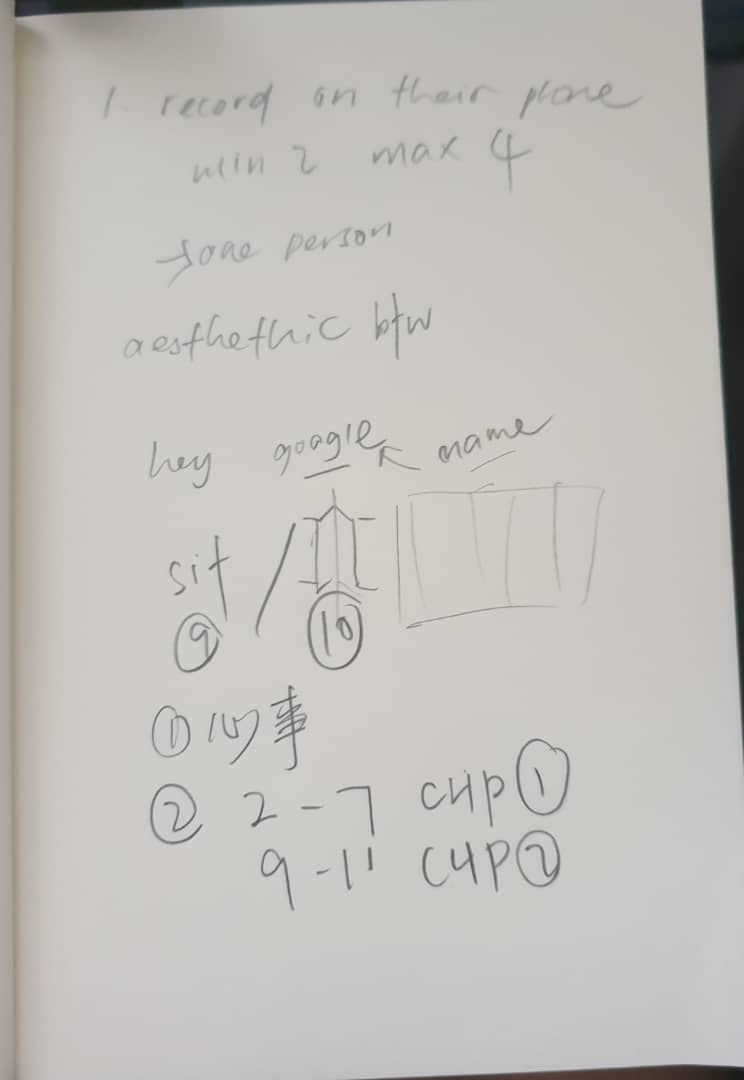 1. record on their phone
min 2 max 4
→ one person
aesthethic btw
hey google ↖ name
sit / 
⑨ ⑩
① 心事
② 2-7 cup ①
9-11 cup ②